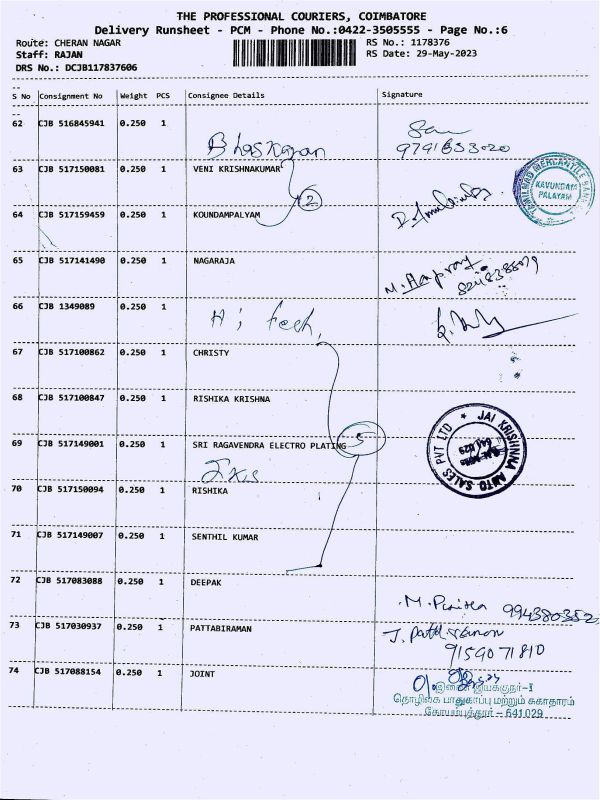 THE PROFESSIONAL COURIERS, COIMBATORE
Delivery Runsheet - PCM - Phone No.:0422-3505555 - Page No.:6
Route: CHERAN NAGAR RS No.: 1178376
Staff: RAJAN RS Date: 29-May-2023
DRS No.: DCJB117837606
S No Consignment No Weight PCS Consignee Details Signature
62 CJB 516845941 0.250 1
Bhaskaran
9791653020
63 CJB 517150081 0.250 1 VENI KRISHNAKUMAR
TAMILNAD MERCANTILE BANK
KAVUNDAM
PALAYAM
2
64 CJB 517159459 0.250 1 KOUNDAMPALYAM
65 CJB 517141490 0.250 1 NAGARAJA
66 CJB 1349089 0.250 1
Hi tech
67 CJB 517100862 0.250 1 CHRISTY
68 CJB 517100847 0.250 1 RISHIKA KRISHNA
JAI KRISHNNA AUTO SALES PVT LTD
5
69 CJB 517149001 0.250 1 SRI RAGAVENDRA ELECTRO PLATING
Axis
70 CJB 517150094 0.250 1 RISHIKA
71 CJB 517149007 0.250 1 SENTHIL KUMAR
72 CJB 517083088 0.250 1 DEEPAK
994380352
73 CJB 517030937 0.250 1 PATTABIRAMAN
J. Pattabiraman
9159071810
74 CJB 517088154 0.250 1 JOINT
இணை இயக்குநர்-I
தொழிலக பாதுகாப்பு மற்றும் சுகாதாரம்
கோயம்புத்தூர் – 641 029